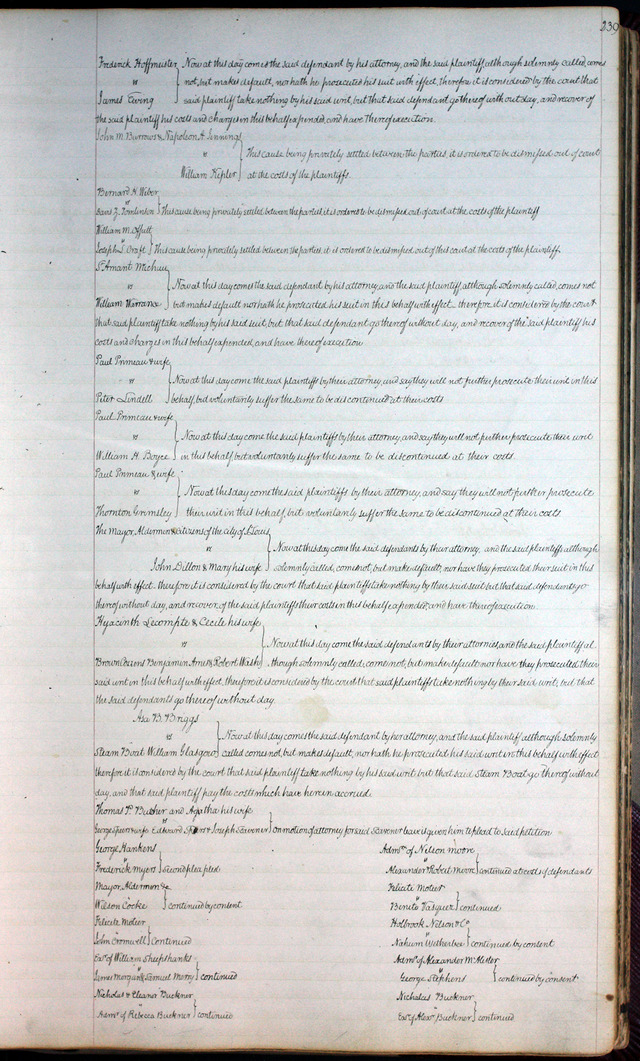 239
Frederick Hoffmeister } Now at this day comes the said defendant by his attorney, and the said plaintiff although solemnly called, comes
vs } not, but makes default, nor hath he prosecuted his suit with effect, therefore it is considered by the court that
James Ewing } said plaintiff take nothing by his said writ, but that said defendant go thereof without day, and recover of
the said plaintiff his costs and charges in this behalf expended, and have thereof execution.
John M. Burrows & Napoleon H. Jennings
vs } This cause being privately settled between the parties, it is ordered to be dismissed out of court
William Kepler } at the costs of the plaintiffs.
Bernard H. Wiber
vs
Davis Z. Tomlinson } This cause being privately settled between the parties it is ordered to be dismissed out of court at the costs of the plaintiff
William M. Offutt
vs
Joseph L. Craft } This cause being privately settled between the parties, it is ordered to be dismissed out of this court at the costs of the plaintiff.
St Amant Michau
vs } Now at this day comes the said defendant by his attorney, and the said plaintiff although solemnly called, comes not
William Warrance } but makes default nor hath he prosecuted his suit in this behalf with effect therefore it is considered by the court
that said plaintiff take nothing by his said suit, but that said defendant go thereof without day, and recover of the said plaintiff his
costs and charges in this behalf expended, and have thereof execution
Paul Primeau & wife
vs } Now at this day come the said plaintiffs by their attorney, and say they will not further prosecute their writ in this
Peter Lindell } behalf, but voluntarily suffer the same to be discontinued at their costs
Paul Primeau & wife
vs } Now at this day come the said plaintiffs by their attorney and say they will not further prosecute their writ
William H. Boyce } in this behalf but voluntarily suffer the same to be discontinued at their costs.
Paul Primeau & wife
vs } Now at this day come the said plaintiffs by their attorney, and say they will not further prosecute
Thornton Grimsley } their writ in this behalf but voluntarily suffer the same to be discontinued at their costs
The Mayor, Aldermen & citizens of the city of St Louis
vs } Now at this day come the said defendants by their attorney, and the said plaintiffs although
John Dillon & Mary his wife } solemnly called, come not, but make default, nor have they prosecuted their suit in this
behalf with effect. therefore it is considered by the court that said plaintiffs take nothing by their said suit but that said defendants go
thereof without day, and recover of the said plaintiffs their costs in this behalf expended, and have thereof execution.
Hyacinth Lecompte & Cecile his wife
vs } Now at this day come the said defendants by their attornies, and the said plaintiffs al
Brown Cozens Benjamin Ames & Robert Wash } though solemnly called, come not, but make default nor have they prosecuted their
said writ in this behalf with effect, therefore it is considered by the court that said plaintiffs take nothing by their said writ, but that
the said defendants go thereof without day.
Asa B. Briggs
vs } Now at this day comes the said defendant by her attorney, and the said plaintiff although solemnly
Steam Boat William Glasgow } called comes not, but makes default, nor hath he prosecuted his said writ in this behalf with effect
therefore it is considered by the court that said plaintiff take nothing by his said writ, but that said Steam Boat go thereof without
day, and that said plaintiff pay the costs which have herein accrued.
Thomas P. Butcher and Agatha his wife
vs
George Speers & wife Edward Speers & Joseph Scavener } On motion of attorney for said Scavener leave is given him to plead to said petition
George Hankens
vs
Frederick Myers } second plea pled.
Mayor, Aldermen &c
vs
Wilson Cocke } continued by consent
Felicite Motier
vs
John Cromwell } continued
Exs. of William Sheepshanks
vs
James Morgan & Samuel Morry } continued
Nicholas & Eleanor Buckner
vs
Admr. of Rebecca Buckner } continued
Admrs. of Nelson Moore
vs
Alexander & Robert Moore } continued at costs of defendants
Felicite Motier
vs
Benito Vasquez } continued
Holbrook Nelson & Co
vs
Nahum Witherbee } continued by consent
Admr. of Alexander McAlister
vs
George Stephens } continued by consent
Nicholas Buckner
vs
Exs. of Alexr. Buckner } continued